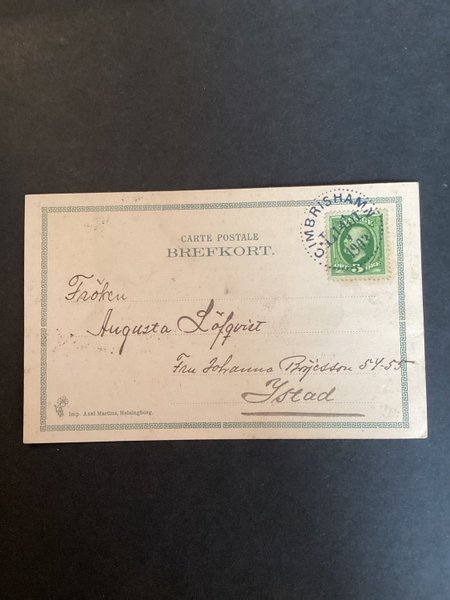 CIMBRISHAMN
1902
5
ÖRE
CARTE POSTALE
BREFKORT.
Fröken
Augusta Löfqvist
Fru Johanna Böjesson 54-55
Ystad
Imp. Axel Martins, Helsingborg.